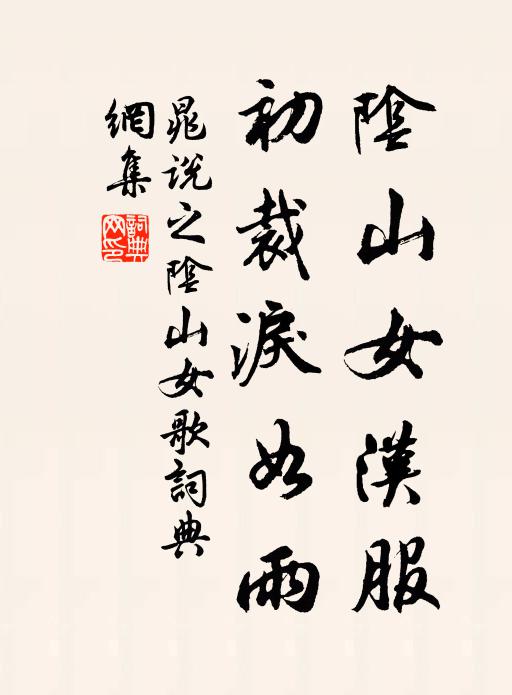 陰山女漢服
初裁淚如雨
晁説之陰山女歌詞典
網集
詞典網印